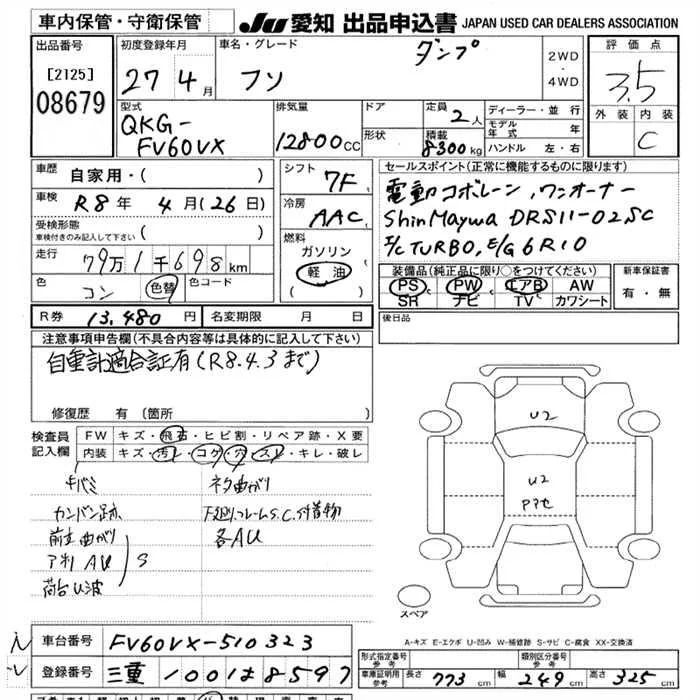 車内保管・守衛保管
JU 愛知 出品申込書 JAPAN USED CAR DEALERS ASSOCIATION
出品番号
[2125]
08679
初度登録年月
27 4月
車名・グレード
フソ
ダンプ
2WD
・
4WD
評価点
3.5
外装 内装
C
型式
QKG-
FV60VX
排気量
12800cc
ドア
形状
定員 2人
積載
8300kg
ディーラー・並行
モデル年式 年
ハンドル 左・右
車歴
自家用・( )
車検
R8年 4月(26日)
受検形態
車検付きのみ記入して下さい ( )
走行
79万1千698km
色
コン
色替
色コード
シフト
7F
冷房
AAC
燃料
ガソリン
軽油
( )
セールスポイント(正常に機能するものに限ります)
電動コボレーン,ワンオーナー
ShinMaywa DRS11-02SC
I/C TURBO, E/G 6R10
装備品(純正品に限り○をつけてください)
PS PW エアB AW
SR ナビ TV カワシート
新車保証書
有・無
R券 13,480円
名変期限 月 日
後日品
注意事項申告欄(不具合内容等は具体的に記入して下さい)
自重計適合証有(R8.4.3まで)
修復歴 有(箇所
検査員
記入欄
FW キズ・飛石・ヒビ割・リペア跡・X要
内装 キズ・汚レ・コゲ・穴・スレ・キレ・破レ
キバミ
カンバン跡
前ま曲がり
ア利 AU
S
荷台U波
ネタ曲がり
下廻リフレームS.C.付着物
各AU
U2
U2
スペア
A-キズ E-エクボ U-凹み W-補修跡 S-サビ C-腐食 XX-交換済
車台番号 FV60VX-510323
登録番号 三重 100は8597
形式指定番号
参考
類別区分番号
参考
車庫証明用
参考
長さ 773cm
幅 249cm
高さ 325cm